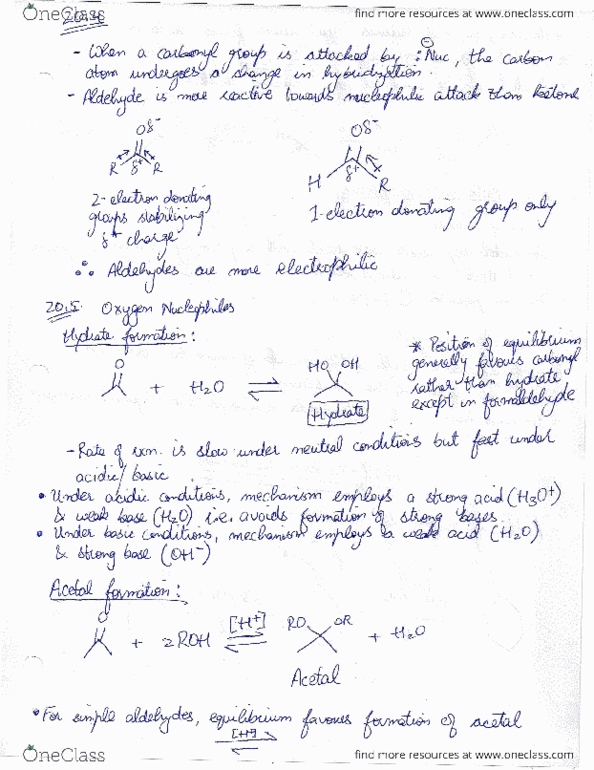 OneClass
find more resources at www.oneclass.com
20.4
- When a carbonyl group is attacked by :Nuc, the carbon
atom undergoes a change in hybridization.
- Aldehyde is more reactive towards nucleophilic attack than ketone
Oδ⁻ Oδ⁻
R δ⁺ R
H δ⁺ R
2-electron donating
groups stabilizing
δ⁺ charge
1-electron donating group only
∴ Aldehydes are more electrophilic
20.5. Oxygen Nucleophiles
Hydrate formation:
O + H₂O ⇌ HO OH
Hydrate
* Position of equilibrium
generally favours carbonyl
rather than hydrate
except in formaldehyde
- Rate of rxn. is slow under neutral conditions but fast under
acidic/basic
• Under acidic conditions, mechanism employs a strong acid (H₃O⁺)
& weak base (H₂O) i.e. avoids formation of strong bases.
• Under basic conditions, mechanism employs a weak acid (H₂O)
& strong base (OH⁻)
Acetal formation:
O + 2ROH [H⁺] ⇌ RO OR + H₂O
Acetal
• For simple aldehydes, equilibrium favours formation of acetal
[H⁺] ⇌
OneClass
find more resources at www.oneclass.com